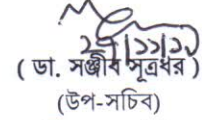 ( ডা. সঞ্জীব সূত্রধর )
(উপ-সচিব)